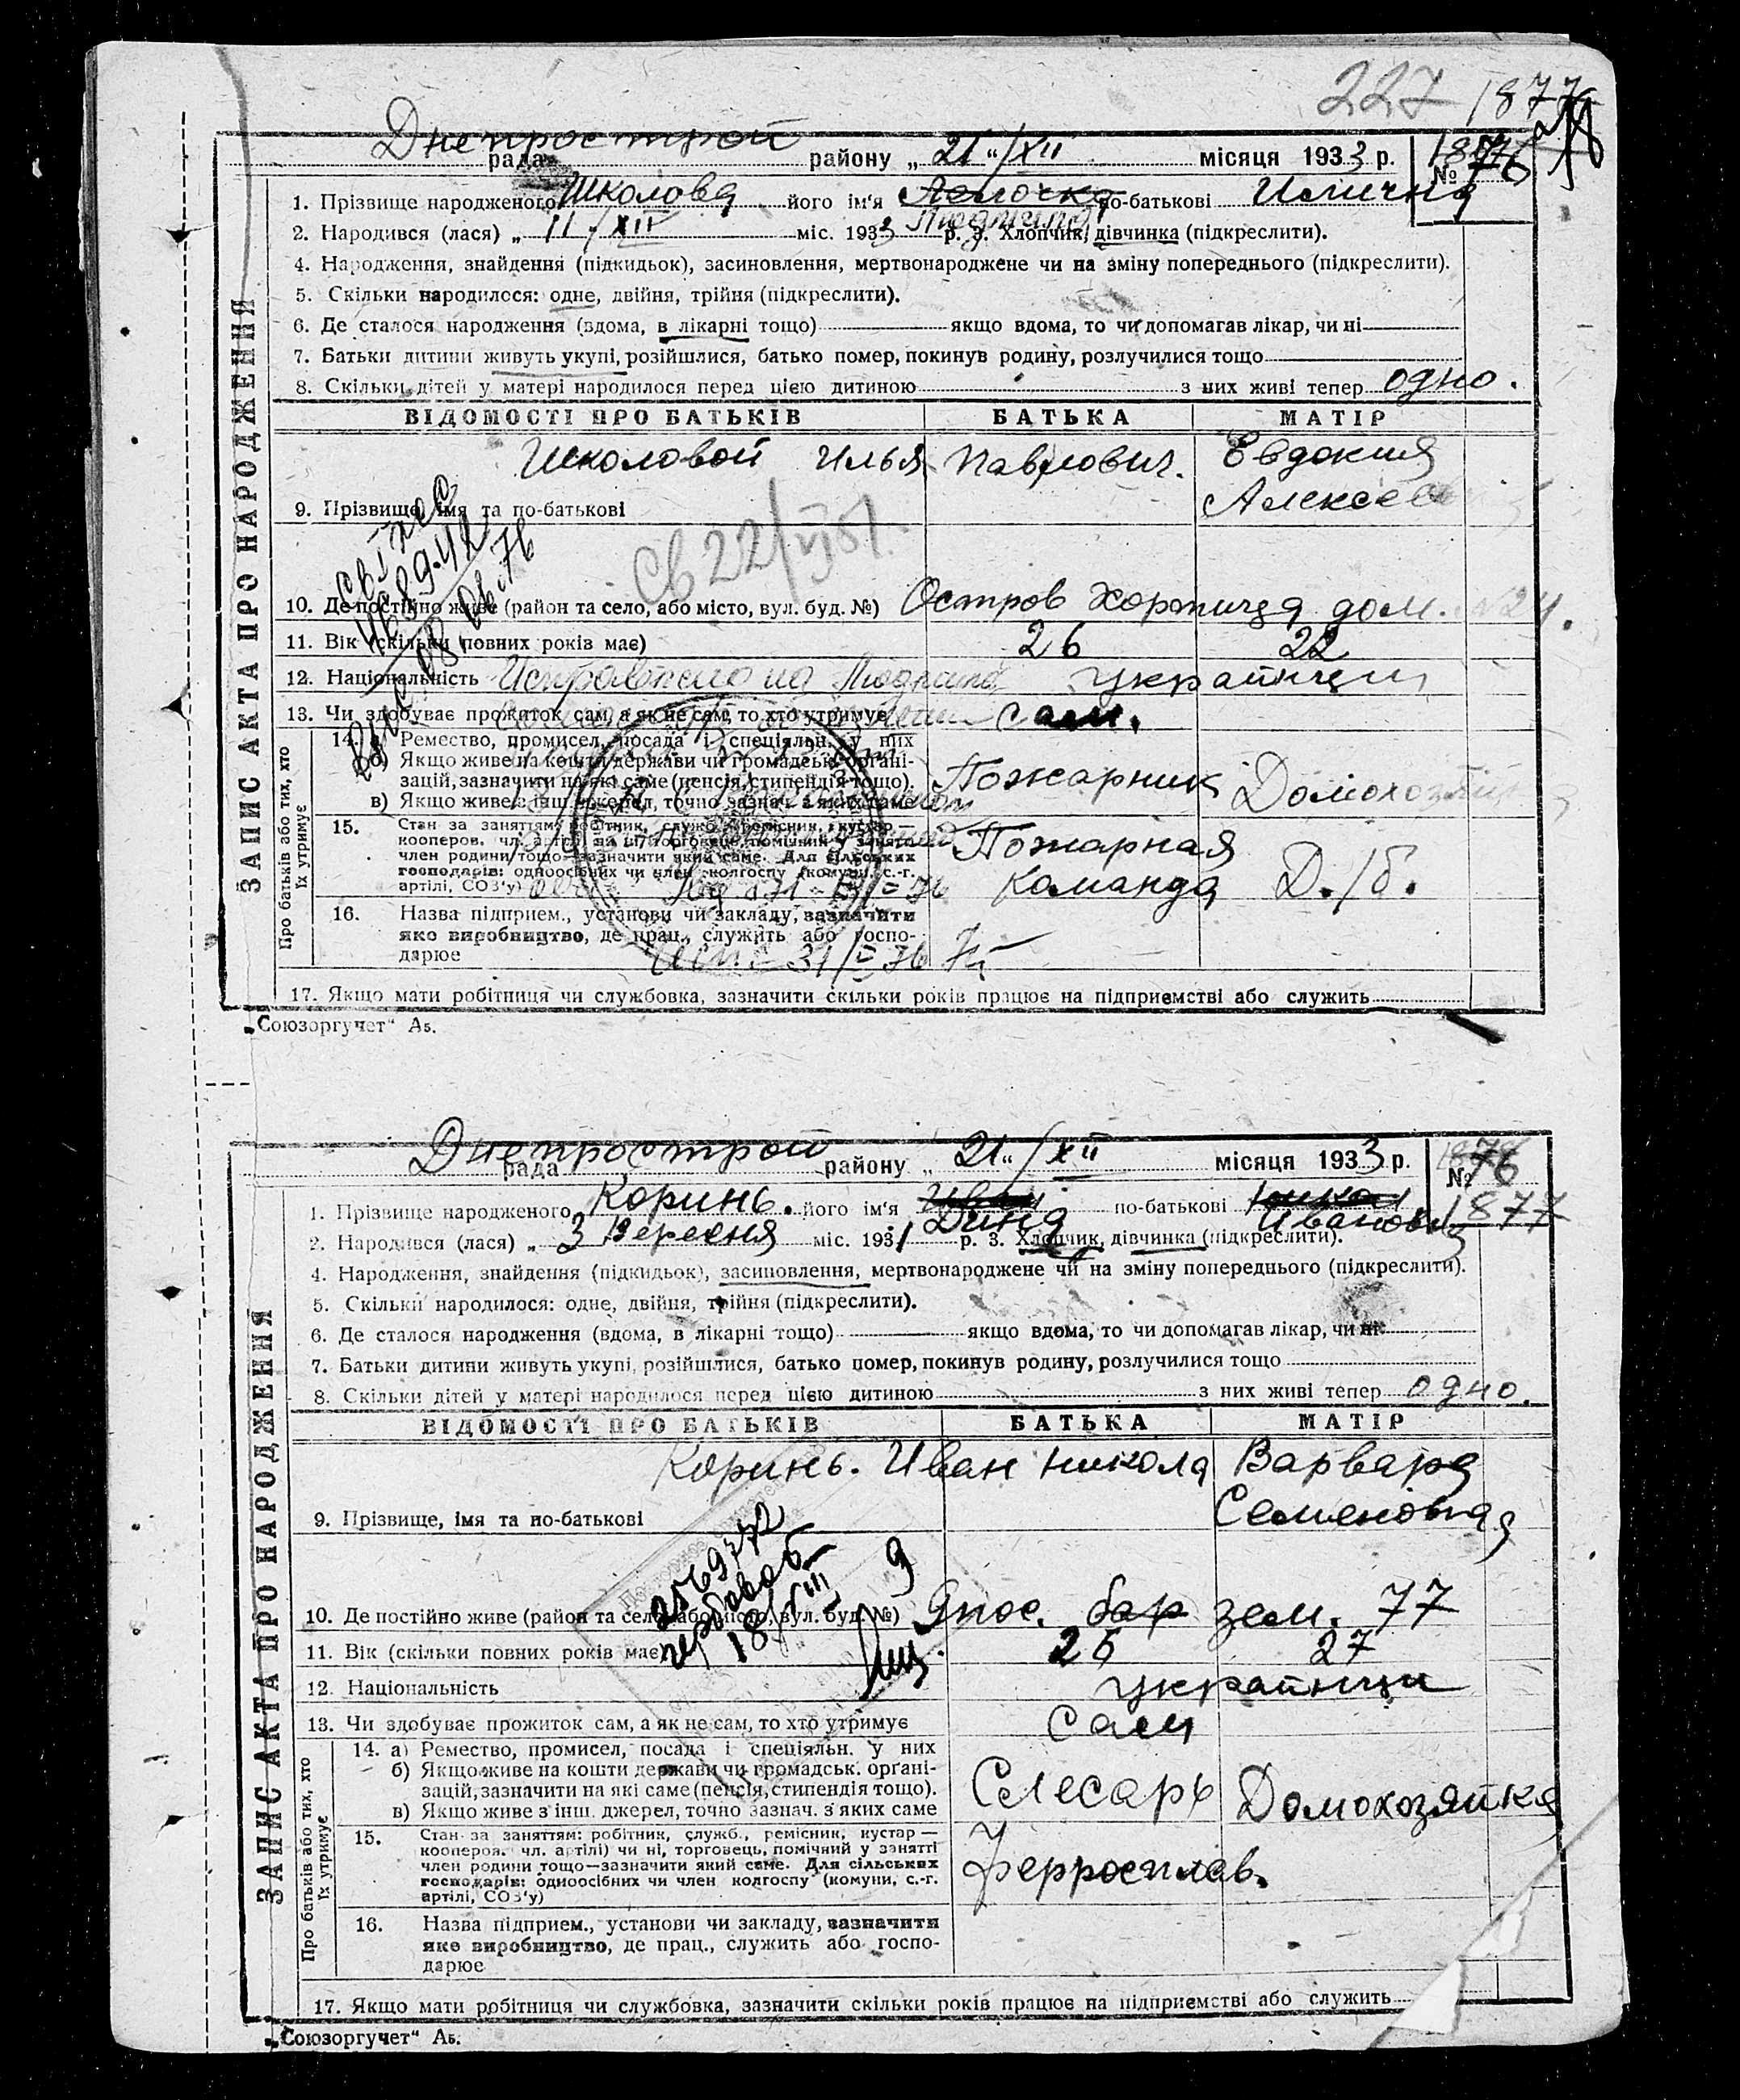 227 1877
Днепрострой
рада району „ 21 “ / XII місяця 1933 р. № 76
1. Прізвище народженого Школова його ім'я Людмила по-батькові Илична
2. Народився (лася) „ 11 / XII міс. 1933 р. 3. Хлопчик, дівчинка (підкреслити).
4. Народження, знайдення (підкидьок), засиновлення, мертвонароджене чи на зміну попереднього (підкреслити).
5. Скільки народилося: одне, двійня, трійня (підкреслити).
6. Де сталося народження (вдома, в лікарні тощо) якщо вдома, то чи допомагав лікар, чи ні
7. Батьки дитини живуть укупі, розійшлися, батько помер, покинув родину, розлучилися тощо
8. Скільки дітей у матері народилося перед цією дитиною з них живі тепер одно.
ЗАПИС АКТА ПРО НАРОДЖЕННЯ
ВІДОМОСТІ ПРО БАТЬКІВ БАТЬКА МАТІР
Школовой Илья Павлович. Евдокия
Алексеев
9. Прізвище, імя та по-батькові
Св 22/VI 51.
10. Де постійно живе (район та село, або місто, вул. буд. №) Остров Хортица дом. №24.
11. Вік (скільки повних років має) 26 22
12. Національність Исправлено на Людмила украінци
13. Чи здобуває прожиток сам, а як не сам, то хто утримує сам.
Про батьків або тих, хто
їх утримує
14. а) Ремество, промисел, посада і спеціяльн. у них
б) Якщо живе на кошти держави чи громадськ. органі-
зацій, зазначити на які саме (пенсія, стипендія тощо). Пожарник Домохозяйка
в) Якщо живе з інш. джерел, точно зазнач. з яких саме
15. Стан за заняттям: робітник, служб., ремісник, кустар —
кооперов. чл. артілі) чи ні, торговець, помічний у занятті Пожарная
член родини тощо—зазначити який саме. Для сільських
господарів: одноосібних чи член колгоспу (комуни, с.-г. команда Д./б.
артілі, СОЗ'у)
16. Назва підприєм., установи чи закладу, зазначити
яке виробництво, де прац., служить або госпо-
дарює
17. Якщо мати робітниця чи службовка, зазначити скільки років працює на підприємстві або служить
„Союзоргучет“ Аб.
Днепрострой
рада району „ 21 “ / XII місяця 1933 р. № 76
1877
1. Прізвище народженого Коринь. його ім'я Дина по-батькові Ивановна
2. Народився (лася) „ 3 Вересня міс. 1931 р. 3. Хлопчик, дівчинка (підкреслити).
4. Народження, знайдення (підкидьок), засиновлення, мертвонароджене чи на зміну попереднього (підкреслити).
5. Скільки народилося: одне, двійня, трійня (підкреслити).
6. Де сталося народження (вдома, в лікарні тощо) якщо вдома, то чи допомагав лікар, чи ні
7. Батьки дитини живуть укупі, розійшлися, батько помер, покинув родину, розлучилися тощо
8. Скільки дітей у матері народилося перед цією дитиною з них живі тепер одно.
ЗАПИС АКТА ПРО НАРОДЖЕННЯ
ВІДОМОСТІ ПРО БАТЬКІВ БАТЬКА МАТІР
Коринь. Иван Никола Варвара
Семеновна
9. Прізвище, імя та по-батькові
10. Де постійно живе (район та село, або місто, вул. буд. №) 9 пос. бар зем. 77
11. Вік (скільки повних років має 26 27
12. Національність украінци
13. Чи здобуває прожиток сам, а як не сам, то хто утримує сам
Про батьків або тих, хто
їх утримує
14. а) Ремество, промисел, посада і спеціяльн. у них
б) Якщо живе на кошти держави чи громадськ. органі-
зацій, зазначити на які саме (пенсія, стипендія тощо). Слесарь Домохозяйка
в) Якщо живе з інш. джерел, точно зазнач. з яких саме
15. Стан за заняттям: робітник, служб., ремісник, кустар —
кооперов. чл. артілі) чи ні, торговець, помічний у занятті
член родини тощо—зазначити який саме. Для сільських Ферросплав.
господарів: одноосібних чи член колгоспу (комуни, с.-г.
артілі, СОЗ'у)
16. Назва підприєм., установи чи закладу, зазначити
яке виробництво, де прац., служить або госпо-
дарює
17. Якщо мати робітниця чи службовка, зазначити скільки років працює на підприємстві або служить
„Союзоргучет“ Аб.